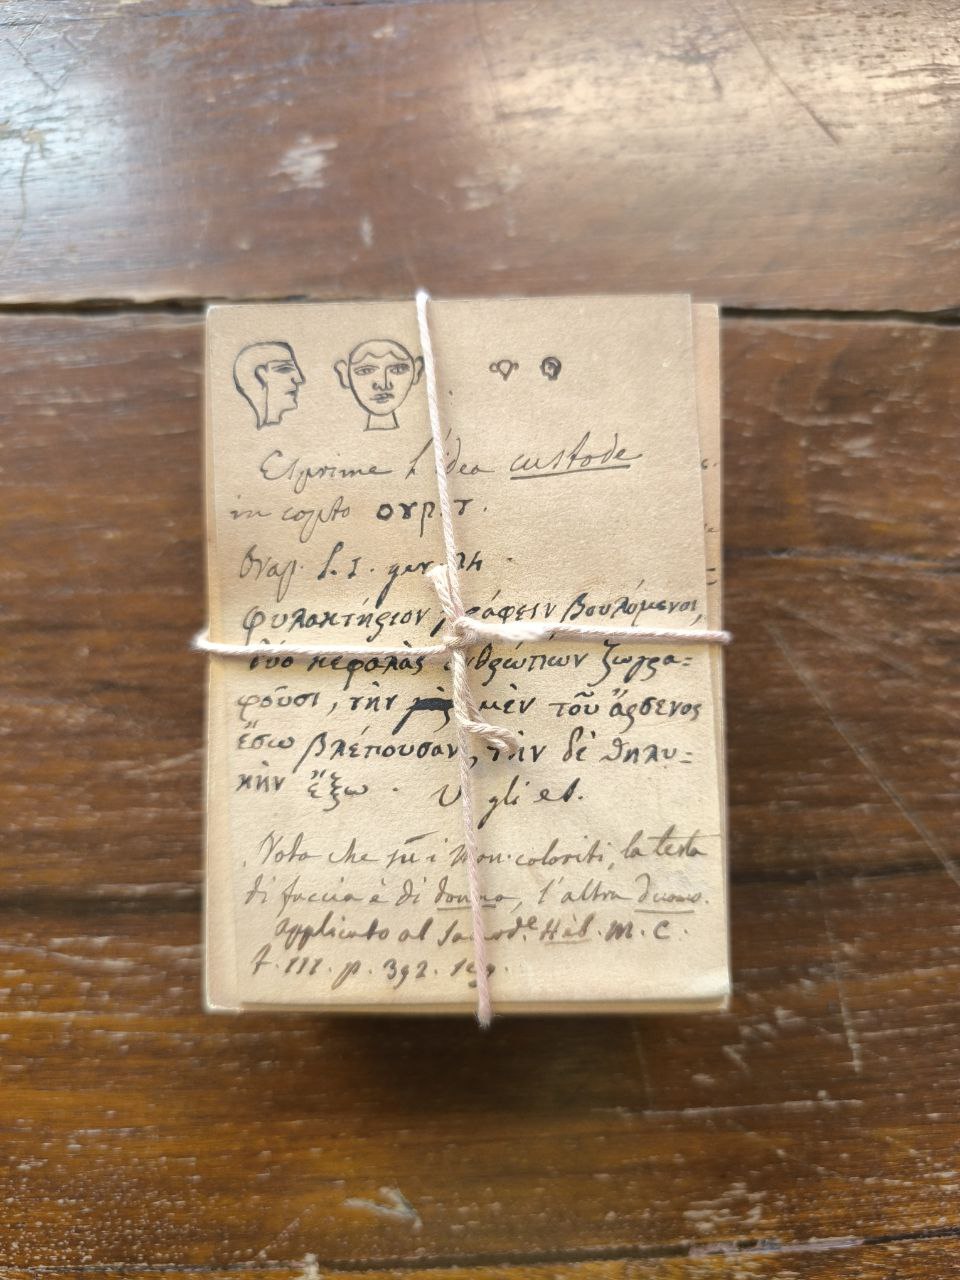 Esprime l'idea custode
in copto ουρ.τ.
Orap. l. I. 24.
φυλακτήριον γράφειν βουλόμενοι,
δύο κεφαλὰς ἀνθρώπων ζωγρα=
φοῦσι, τὴν μὲν τοῦ ἄρσενος
ἔσω βλέπουσαν, τὴν δὲ θηλυ=
κὴν ἔξω. V gli et.
Nota che su i Mon. coloriti, la testa
di faccia è di donna, l'altra d'uomo.
applicato al Hàl. M. C.
t. III. p. 392. seg.